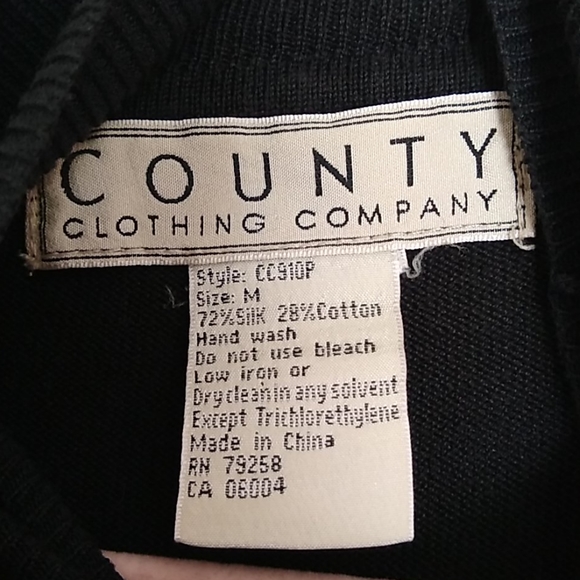 COUNTY
CLOTHING COMPANY
Style: CC910P
Size: M
72%Silk 28%Cotton
Hand wash
Do not use bleach
Low iron or
Dryclean in any solvent
Except Trichlorethylene
Made in China
RN 79258
CA 06004